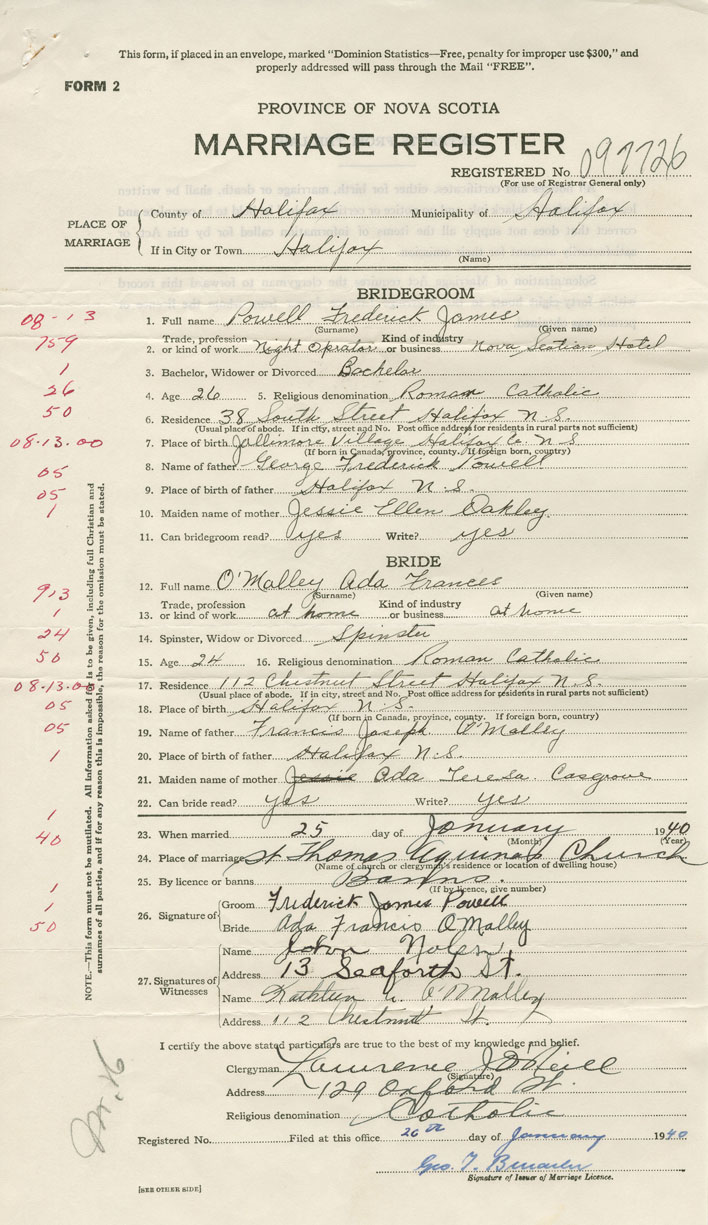 This form, if placed in an envelope, marked "Dominion Statistics—Free, penalty for improper use $300," and
properly addressed will pass through the Mail "FREE".
FORM 2
PROVINCE OF NOVA SCOTIA
MARRIAGE REGISTER
REGISTERED No. 097726
(For use of Registrar General only)
PLACE OF MARRIAGE
County of Halifax Municipality of Halifax
If in City or Town Halifax
(Name)
BRIDEGROOM
08-13 1. Full name Powell Frederick James
(Surname) (Given name)
759 2. Trade, profession or kind of work Night Oprator Kind of industry or business Nova Scotian Hotel
1 3. Bachelor, Widower or Divorced Bachelor
26 4. Age 26 5. Religious denomination Roman Catholic
50 6. Residence 38 South Street Halifax N.S.
(Usual place of abode. If in city, street and No. Post office address for residents in rural parts not sufficient)
08.13.00 7. Place of birth Jallimore Village Halifax Co. N S
(If born in Canada, province, county. If foreign born, country)
05 8. Name of father George Frederick Powell
05 9. Place of birth of father Halifax N.S.
1 10. Maiden name of mother Jessie Ellen Oakley
11. Can bridegroom read? yes Write? yes
BRIDE
913 12. Full name O'Malley Ada Frances
(Surname) (Given name)
1 13. Trade, profession or kind of work at home Kind of industry or business at home
24 14. Spinster, Widow or Divorced Spinster
50 15. Age 24 16. Religious denomination Roman Catholic
08-13.00 17. Residence 112 Chestnut Street Halifax N.S.
(Usual place of abode. If in city, street and No. Post office address for residents in rural parts not sufficient)
05 18. Place of birth Halifax N.S.
(If born in Canada, province, county. If foreign born, country)
05 19. Name of father Francis Joseph O'Malley
1 20. Place of birth of father Halifax N.S.
21. Maiden name of mother Jessie Ada Teresa Casgrove
1 22. Can bride read? yes Write? yes
40 23. When married 25 day of January 1940
(Month) (Year)
24. Place of marriage St Thomas Aquinas Church
(Name of church or clergyman's residence or location of dwelling house)
1 25. By licence or banns Banns.
(If by licence, give number)
1 26. Signature of Groom Frederick James Powell
50 Bride Ada Francis O'Malley
27. Signatures of Witnesses
Name John Nolen
Address 13 Seaforth St.
Name Kathleen O'Malley
Address 112 Chestnutt St.
NOTE.—This form must not be mutilated. All information asked for is to be given, including full Christian and
surnames of all parties, and if for any reason this is impossible, the reason for the omission must be stated.
I certify the above stated particulars are true to the best of my knowledge and belief.
Clergyman Lawrence J O'Neill
(Signature)
Address 129 Oxford St.
Religious denomination Catholic
Registered No. Filed at this office 26th day of January 1940
Geo. T.
Signature of Issuer of Marriage Licence.
[SEE OTHER SIDE]